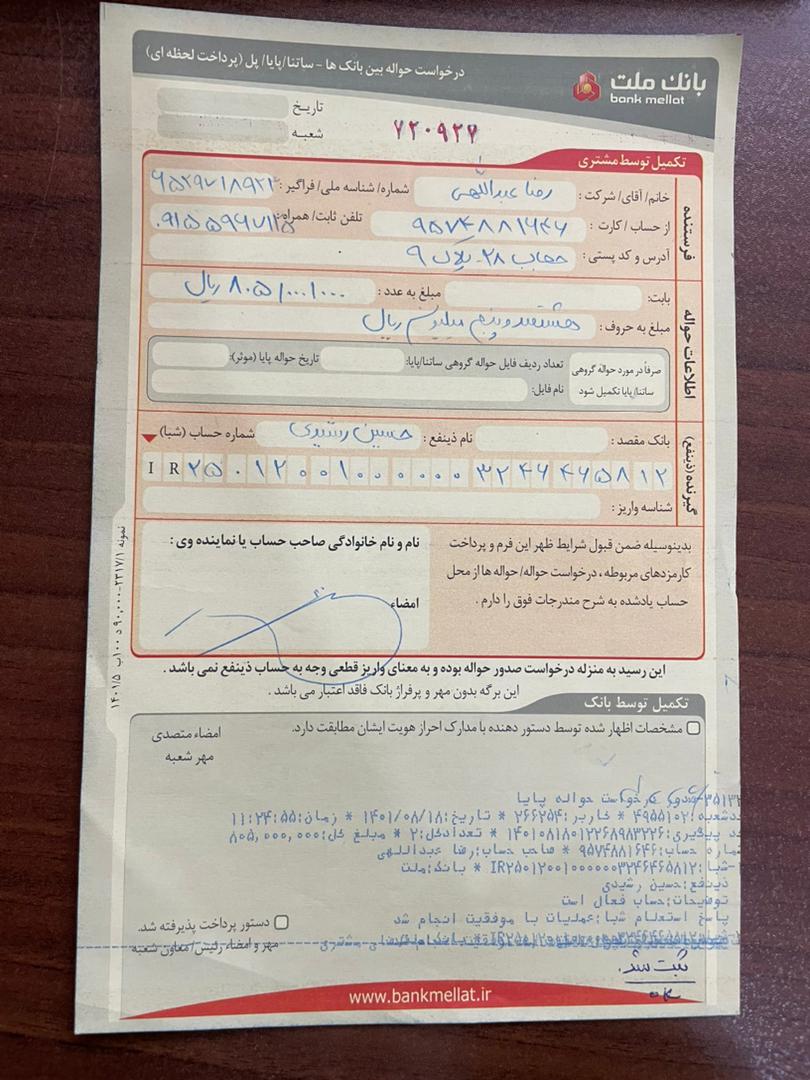 بانک ملت
bank mellat
درخواست حواله بین بانک ها - ساتنا/پایا/پل (پرداخت لحظه ای)
تاریخ
شعبه
۷۲۰۹۲۷
تکمیل توسط مشتری
فرستنده
خانم/آقای/شرکت: رضا عبداللهی شماره/شناسه ملی/فراگیر:
از حساب/کارت: ۹۵۷۴۸۸۱۶۴۶ تلفن ثابت/همراه: ۰۹۱۵۵۹۹۷۱۱۵
آدرس و کد پستی: حجاب ۲۸ - پلاک ۹
اطلاعات حواله
بابت: مبلغ به عدد: ۸۰۵/۰۰۰/۰۰۰ ریال
مبلغ به حروف: هشتصد و پنج میلیون ریال
صرفاً در مورد حواله گروهی ساتنا/پایا تکمیل شود
تعداد ردیف فایل حواله گروهی ساتنا/پایا: تاریخ حواله پایا (موثر):
نام فایل:
گیرنده (ذینفع)
بانک مقصد: نام ذینفع: حسین رشیدی شماره حساب (شبا)
IR۲۵۰۱۲۰۰۱۰۰۰۰۰۰۳۲۴۶۴۶۵۸۱۲
شناسه واریز:
بدینوسیله ضمن قبول شرایط ظهر این فرم و پرداخت
کارمزدهای مربوطه، درخواست حواله/حواله ها از محل
حساب یادشده به شرح مندرجات فوق را دارم.
نام و نام خانوادگی صاحب حساب یا نماینده وی:
امضاء
این رسید به منزله درخواست صدور حواله بوده و به معنای واریز قطعی وجه به حساب ذینفع نمی باشد.
این برگه بدون مهر و پرفراژ بانک فاقد اعتبار می باشد.
تکمیل توسط بانک
مشخصات اظهار شده توسط دستور دهنده با مدارک احراز هویت ایشان مطابقت دارد.
امضاء متصدی
مهر شعبه
درخواست حواله پایا
۴۹۵۵۱۰۲ * کاربر:۲۶۶۲۵۴ * تاریخ:۱۴۰۱/۰۸/۱۸ * زمان:۱۱:۲۴:۵۵
پیگیری:۱۴۰۱۰۸۱۸۰۱۲۲۶۸۹۸۳۲۲۶ * تعدادکل:۲ * مبلغ کل:۸۰۵,۰۰۰,۰۰۰
حساب:۹۵۷۴۸۸۱۶۴۶ * صاحب حساب:رضا عبداللهی
شبا:IR۲۵۰۱۲۰۰۱۰۰۰۰۰۰۳۲۴۶۴۶۵۸۱۲ * بانک:ملت
ذینفع:حسین رشیدی
توضیحات:حساب فعال است
پاسخ استعلام شبا:عملیات با موفقیت انجام شد
دستور پرداخت پذیرفته شد.
مهر و امضاء رئیس/معاون شعبه
ثبت شد
www.bankmellat.ir